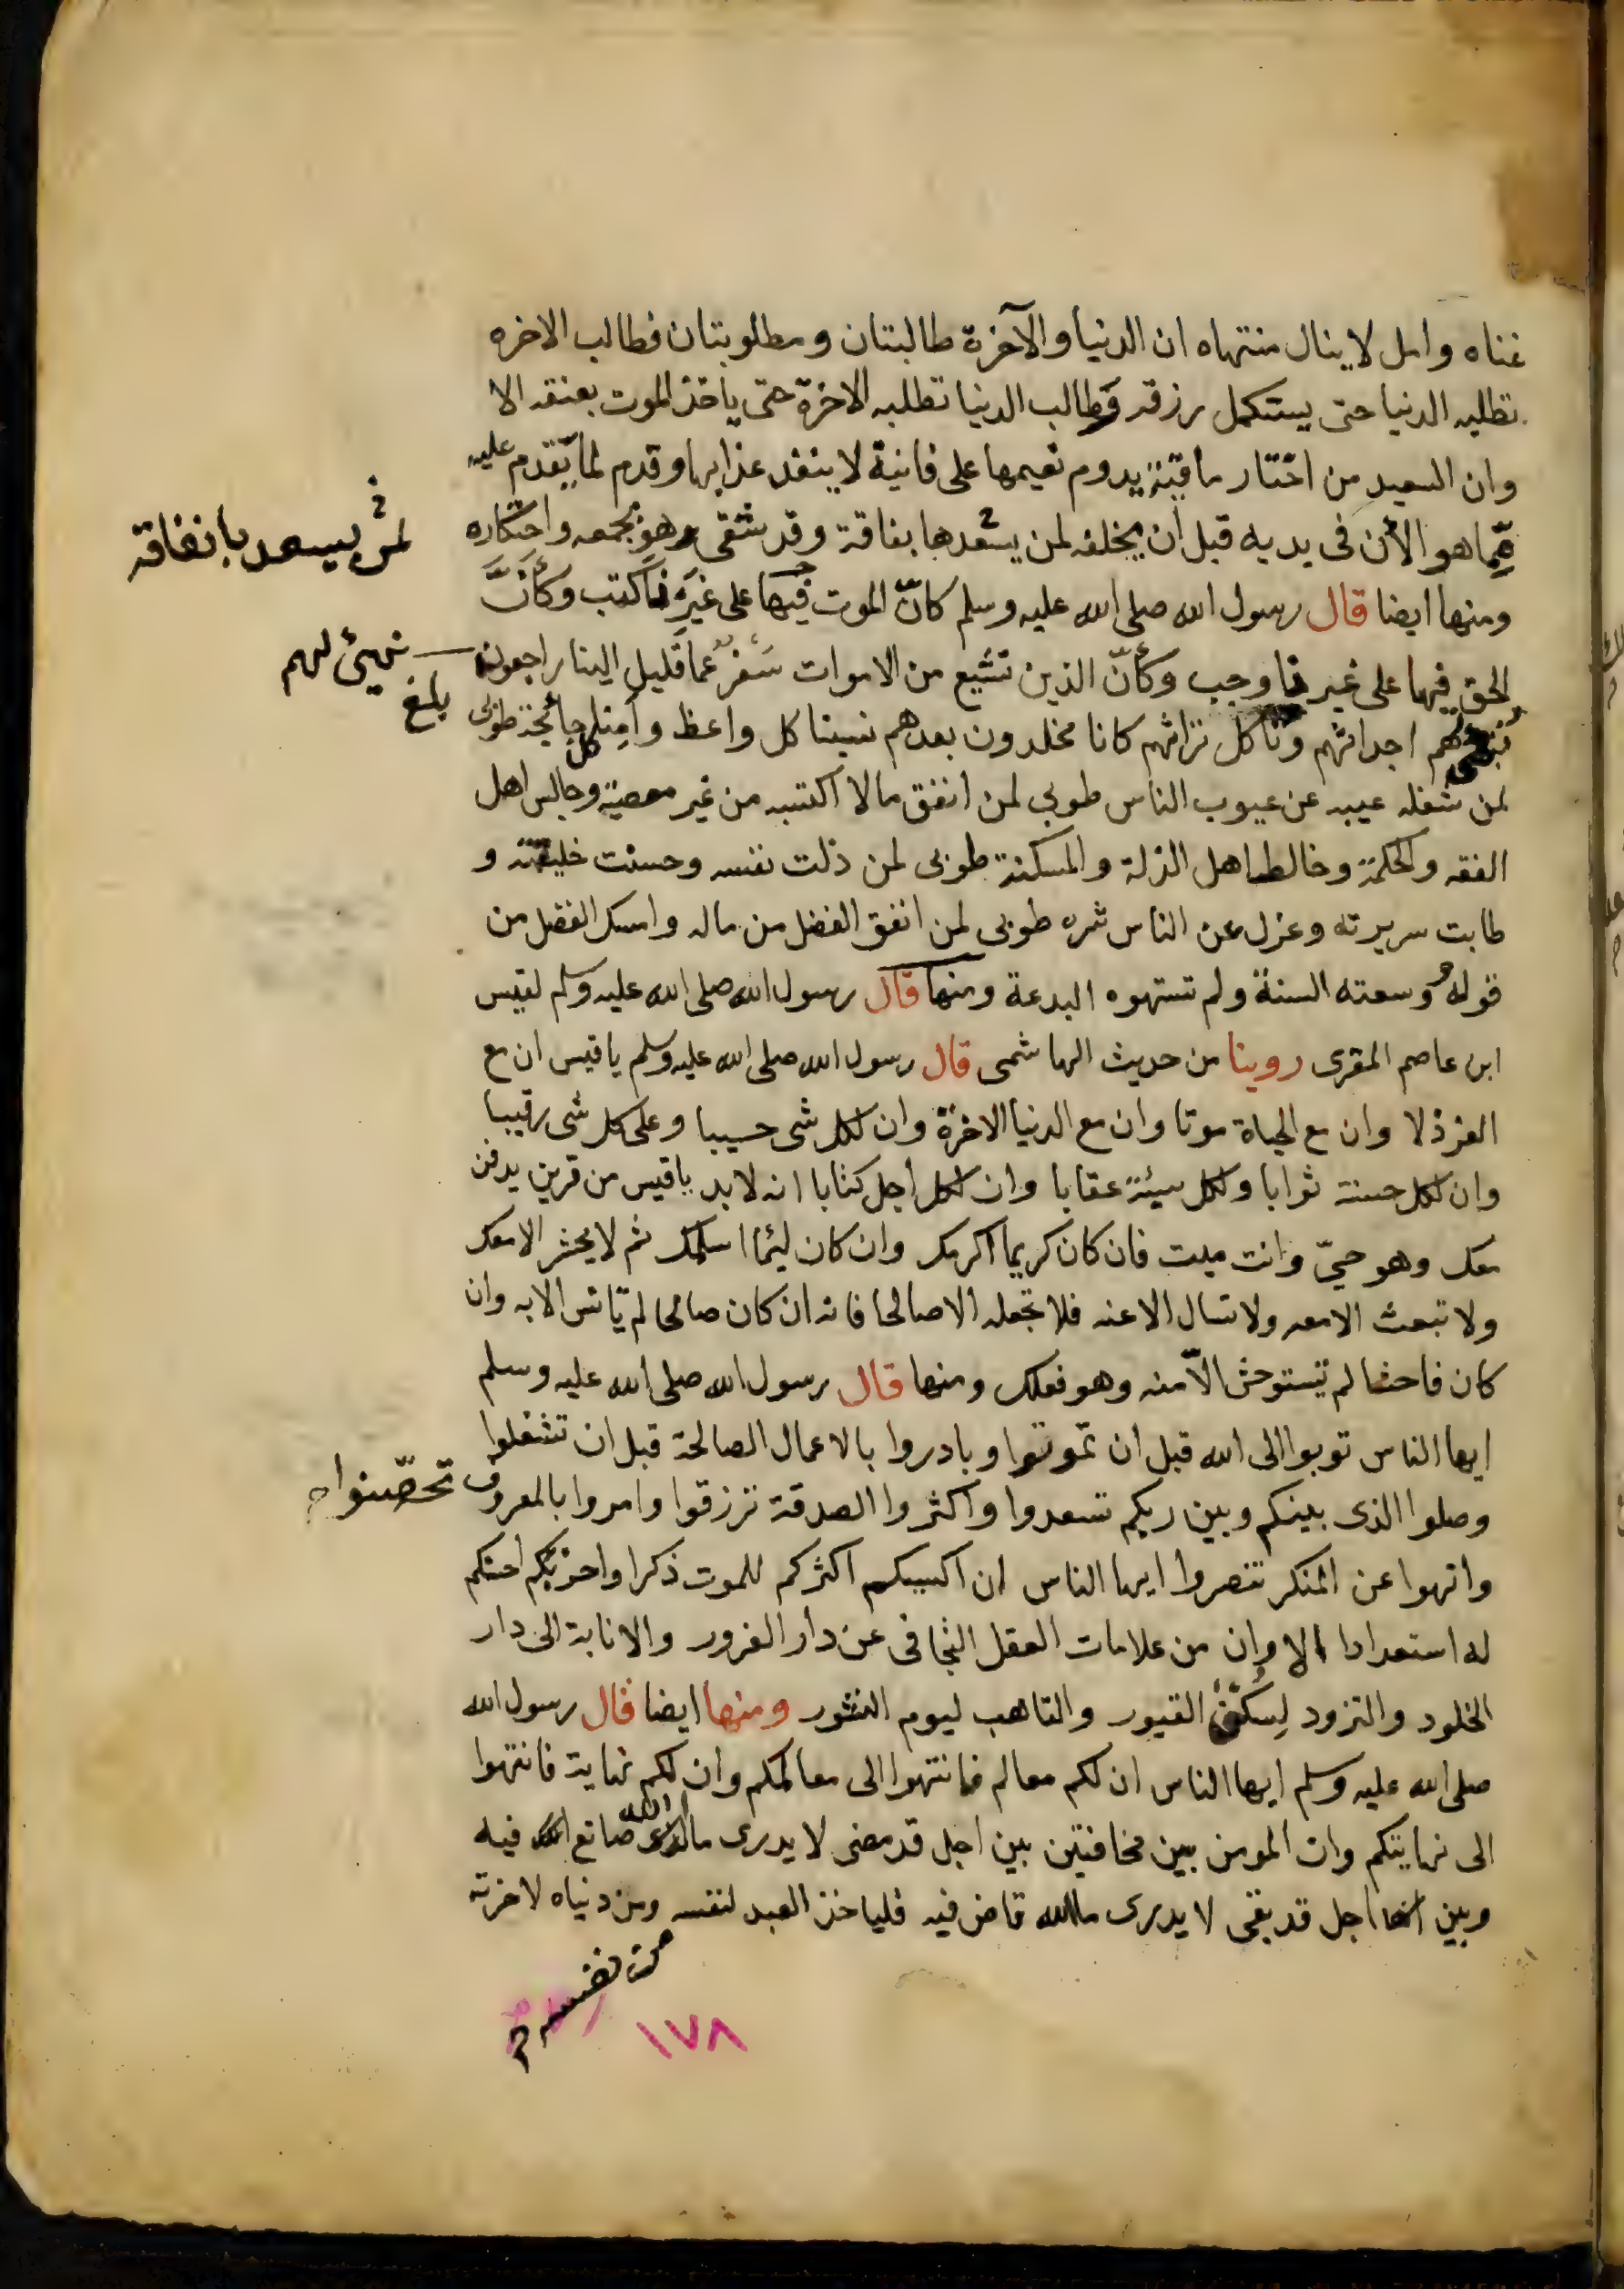 غناه وامل لا ينال منتهاه ان الدنيا والآخرة طالبتان ومطلوبتان فطالب الاخره
تطلبه الدنيا حتى يستكمل رزقه وطالب الدنيا تطلبه الاخرة حتى ياخذ الموت بعنقه الا
وان السعيد من اختار باقية يدوم نعيمها على فانية لا ينفد عذابها وقدم لما يقدم عليه
مما هو الأن فى يديه قبل ان يخلفه لمن يسعدها بفاقة وقد شقى وهو بجمعه واحتكاره
لمن يسعد بانفاقه
ومنها ايضا قال رسول الله صلى الله عليه وسلم كانّ الموت فيها على غيرنا كتب وكأنّ
الحق فيها على غيرنا وجب وكأنّ الذين تشيع من الاموات سفر عما قليل الينا راجعون
نهيئ لهم
بلغ
اجداثهم وناكل تراثهم كانا مخلدون بعدهم نسينا كل واعظ وأمنا كل جائحة طوبى
لمن شغله عيبه عن عيوب الناس طوبى لمن انفق مالا اكتسبه من غير معصية وجالس اهل
الفقه والحكمة وخالط اهل الذلة والمسكنة طوبى لمن ذلت نفسه وحسنت خليقته و
طابت سريرته وعزل عن الناس شره طوبى لمن انفق الفضل من ماله وامسك الفضل من
قوله ووسعته السنة ولم تستهوه البدعة ومنها قال رسول الله صلى الله عليه وسلم لقيس
ابن عاصم المقرى روينا من حديث الهاشمى قال رسول الله صلى الله عليه وسلم ياقيس ان مع
العز ذلا وان مع الحياة موتا وان مع الدنيا الاخرة وان لكل شى حسيبا وعلى كل شى رقيبا
وان لكل حسنة ثوابا ولكل سيئة عقابا وان لكل اجل كتابا انه لا بد ياقيس من قرين يدفن
معك وهو حيّ وانت ميت فان كان كريما اكرمك وان كان ليئما اسلمك ثم لا يحشر الا معك
ولا تبعث الا معه ولا تسال الا عنه فلا تجعله الا صالحا فانه ان كان صالحا لم تانس الا به وان
كان فاحشا لم تستوحش الّا منه وهو فعلك ومنها قال رسول الله صلى الله عليه وسلم
ايها الناس توبوا الى الله قبل ان تموتوا وبادروا بالاعمال الصالحة قبل ان تشغلوا
وصلوا الذى بينكم وبين ربكم تسعدوا واكثروا الصدقة ترزقوا وامروا بالمعروف
تحصّنوا
وانهوا عن المنكر تنصروا ايها الناس ان اكيسكم اكثركم للموت ذكرا واحزمكم احسنكم
له استعدادا الا وان من علامات العقل التجافى عن دار الغرور والانابة الى دار
الخلود والتزود لسكنى القبور والتاهب ليوم النشور ومنها ايضا قال رسول الله
صلى الله عليه وسلم ايها الناس ان لكم معالم فانتهوا الى معالمكم وان لكم نهاية فانتهوا
الى نهايتكم وان المومن بين مخافتين بين اجل قد مضى لا يدرى ما الله صانع فيه
وبين اجل قد بقى لا يدرى ما الله قاض فيه فلياخذ العبد لنفسه ومن دنياه لاخرته
من نفسه
١٧٨